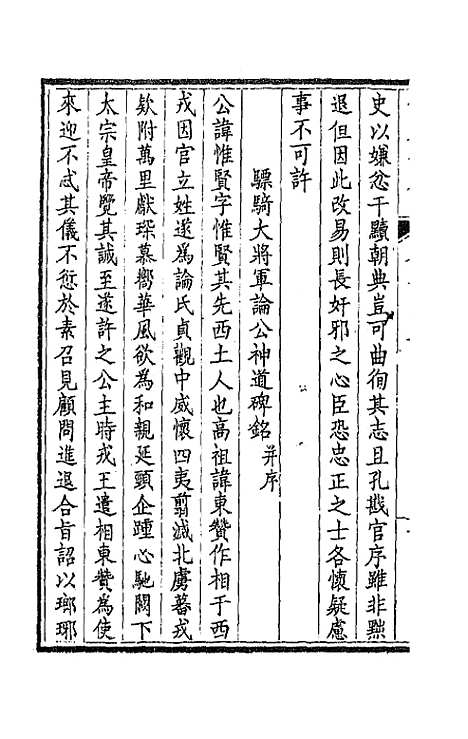 史以嫌忿干黷朝典豈可曲徇其志且孔戡官序雖非黜
退但因此改易則長奸邪之心臣恐忠正之士各懷疑慮
事不可許
驃騎大將軍論公神道碑銘并序
公諱惟賢字惟賢其先西土人也高祖諱東贊作相于西
戎因官立姓遂為論氏貞觀中威懷四夷翦滅北虜蕃戎
欵附萬里獻琛慕嚮華風欲為和親延頸企踵心馳闕下
太宗皇帝覽其誠至遂許之公主時戎王遣相東贊為使
來迎不忒其儀不愆於素召見顧問進退合旨詔以瑯琊